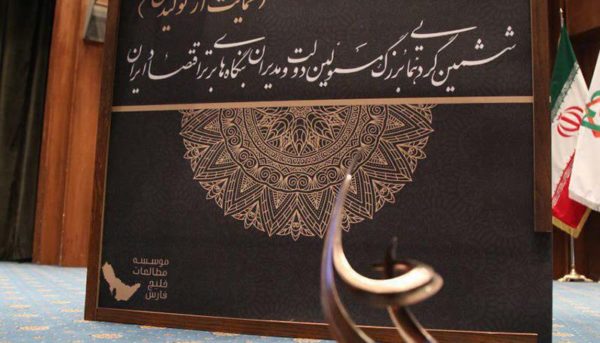 (حمایت از تولید
ششمین گردهمایی بزرگ مسئولین دولت و مدیران بنگاه‌های برتر اقتصاد ایران
موسسه
مطالعات
خلیج
فارس